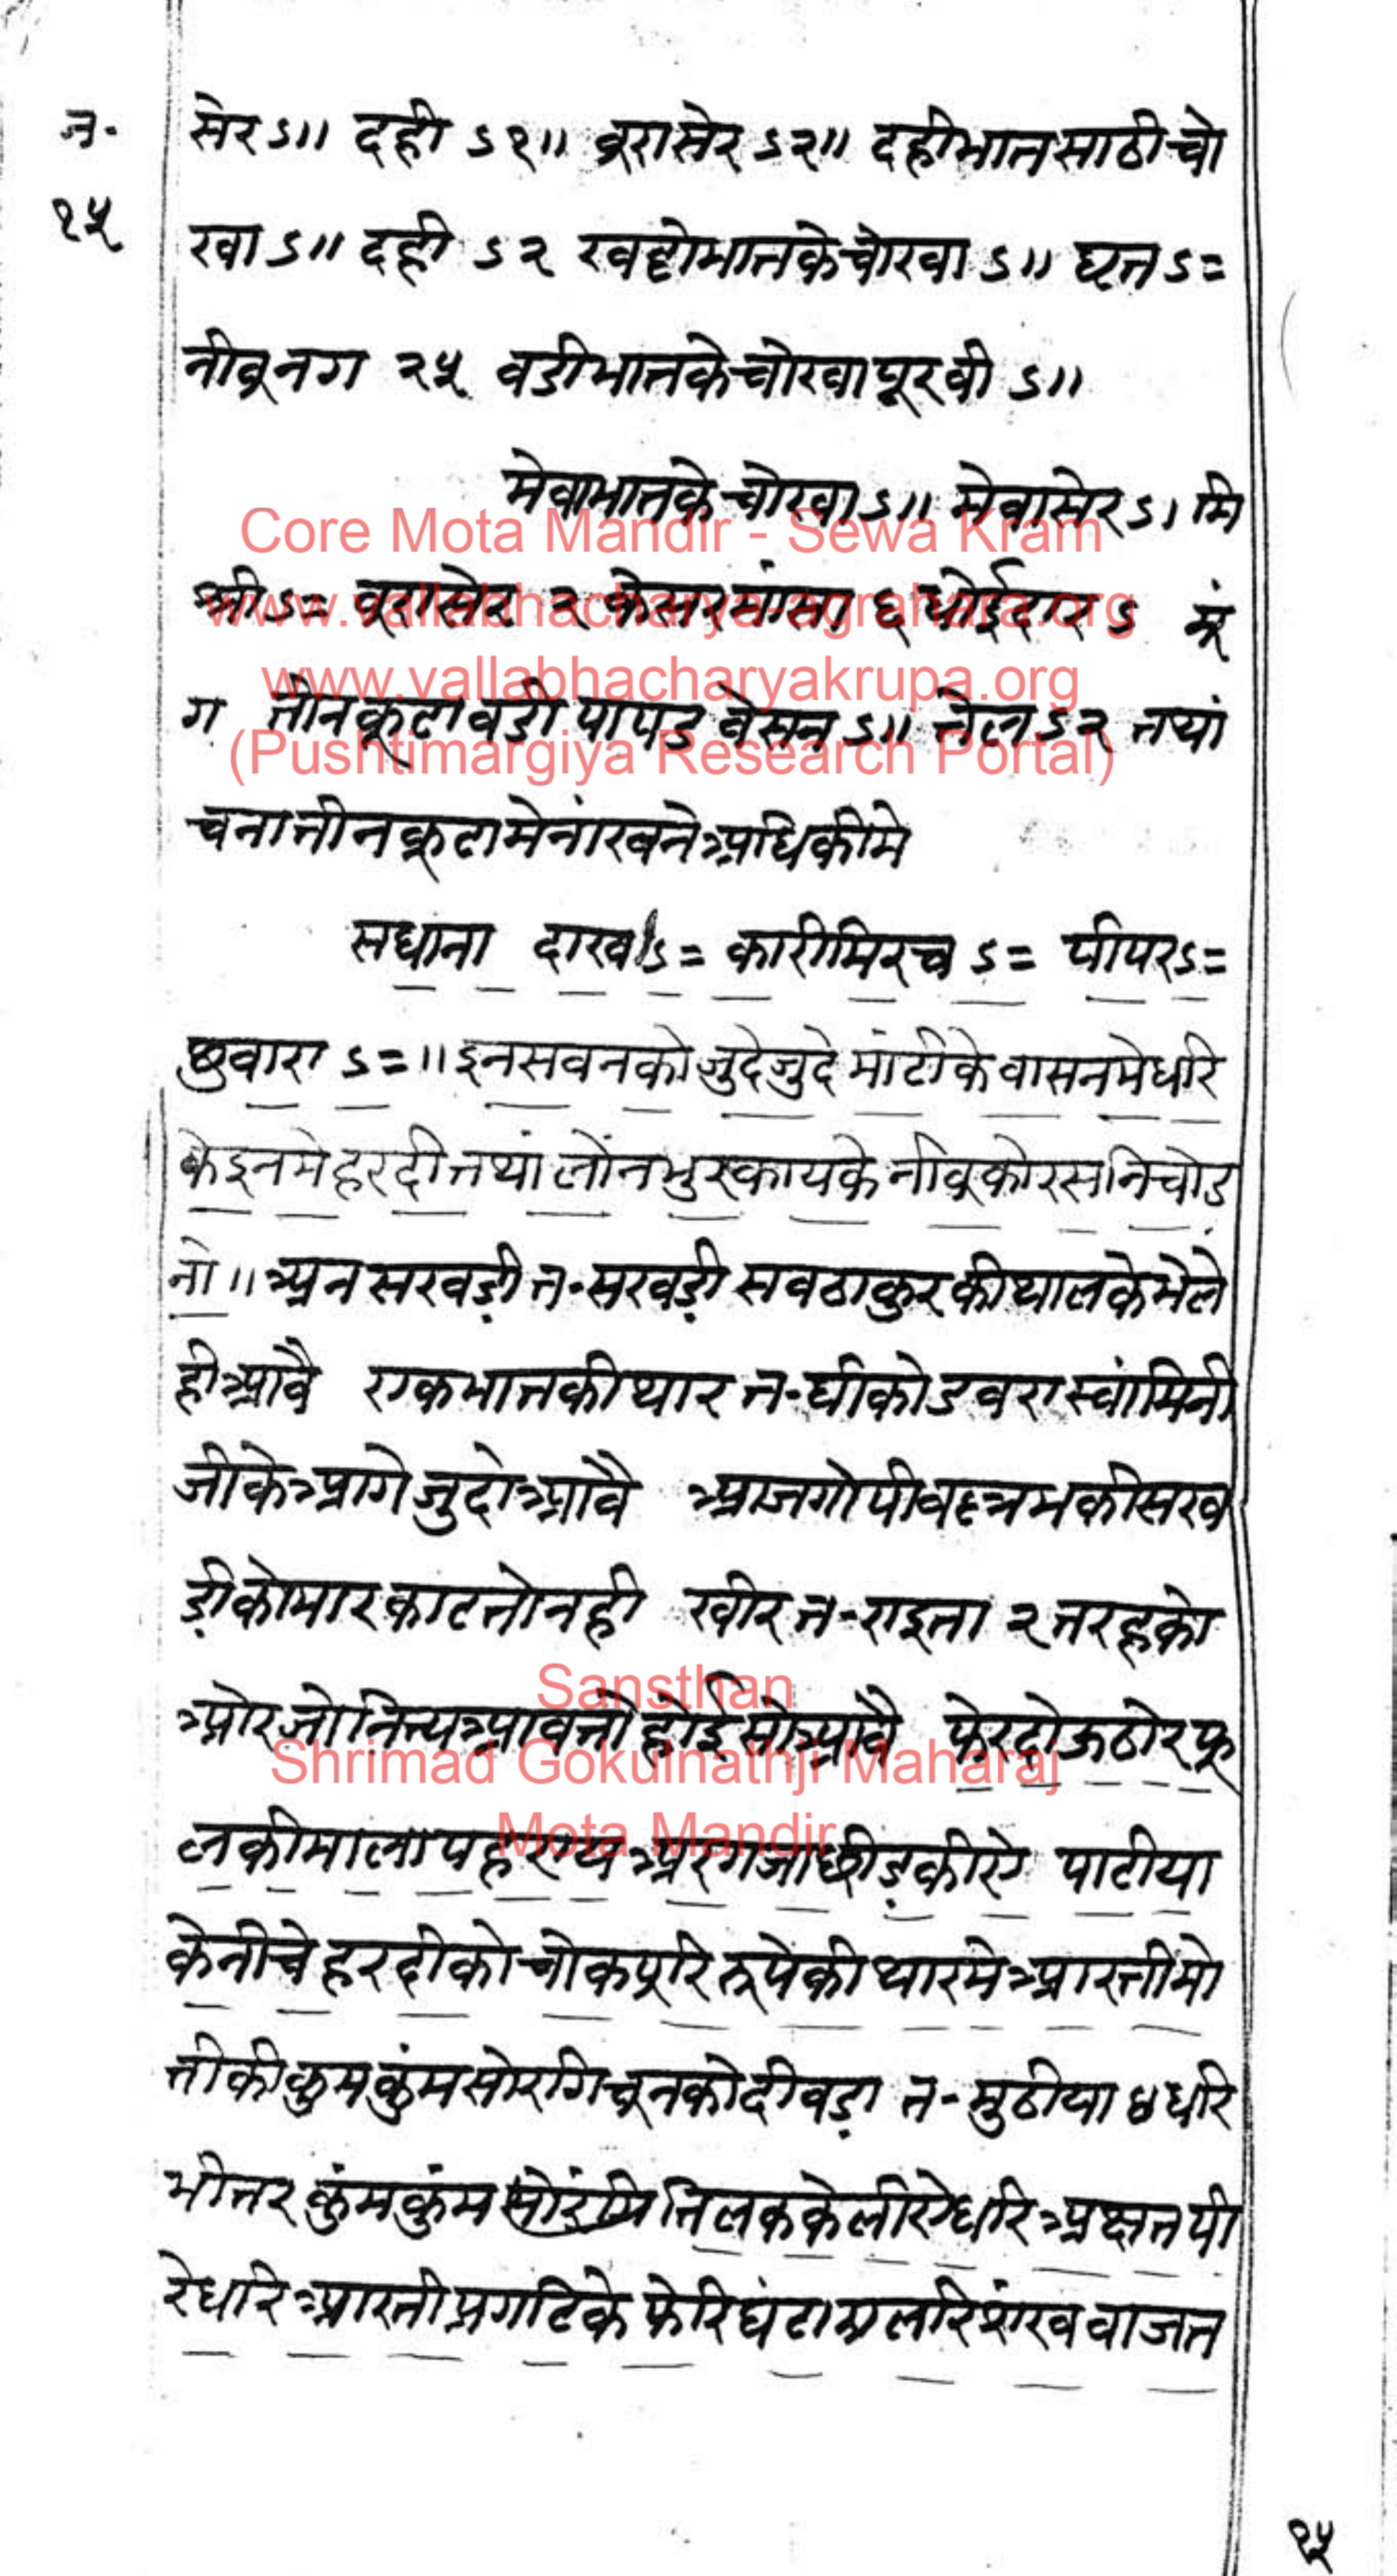 न॰
१५
सेर ऽ॥ दही ऽ१॥ बूरा सेर ऽ२॥ दहीभात साठी चो
खा ऽ॥ दही ऽ२ खट्टोभात के चोखा ऽ॥ घृत ऽ=
नीबू नग २५ वडीभात के चोखा पूरबी ऽ॥
मेवाभात के चोखा ऽ॥ मेवा सेर ऽ। मि
श्री ऽ= बूरा सेर २ केसर मांसा ६ धोईदार ऽ मूं
ग तीनकूटा वडी पापड बेसन ऽ॥ तेल ऽ२ तयां
चना तीनकूटा मे नांखने अधिकी मे
सधाना दाख ऽ= कारीमिरच ऽ= पीपर ऽ=
छुवारा ऽ=॥ इन सवनको जुदे जुदे मांटी के वासन मे धरि
के इनमे हरदी तथां लोंन भुरकाय के नीबू को रस निचोड
नो॥ अनसखड़ी त॰ सखड़ी सव ठाकुर की थाल के भेले
ही आवै एक भात की थार त॰ घी को डवरा स्वांमिनी
जी के आगे जुदो आवै आज गोपीवल्लभ की सख
ड़ी को मार काटतो नही खीर त॰ राइता २ तरह को
ओर जो नित्य आवतो होई सो आवै फेर दोऊ ठोर फू
ल की माला पहराय अरगजा छीड़कीऐ पाटीया
के नीचे हरदी को चोक पूरि रूपे की थार मे आरती मो
ती की कुमकुंम सो रांगि चून को दीवड़ा त॰ मुठीया ४ धरि
भीतर कुंमकुंम सो तिलक के लीऐ धरि अक्षत पी
रे धरि आरती प्रगटि के फेरि घंटा झालरि शंख वाजत
१५
Core Mota Mandir - Sewa Kram
www.vallabhacharya-agrahara.org
www.vallabhacharyakrupa.org
(Pushtimargiya Research Portal)
Sansthan
Shrimad Gokulnathji Maharaj
Mota Mandir